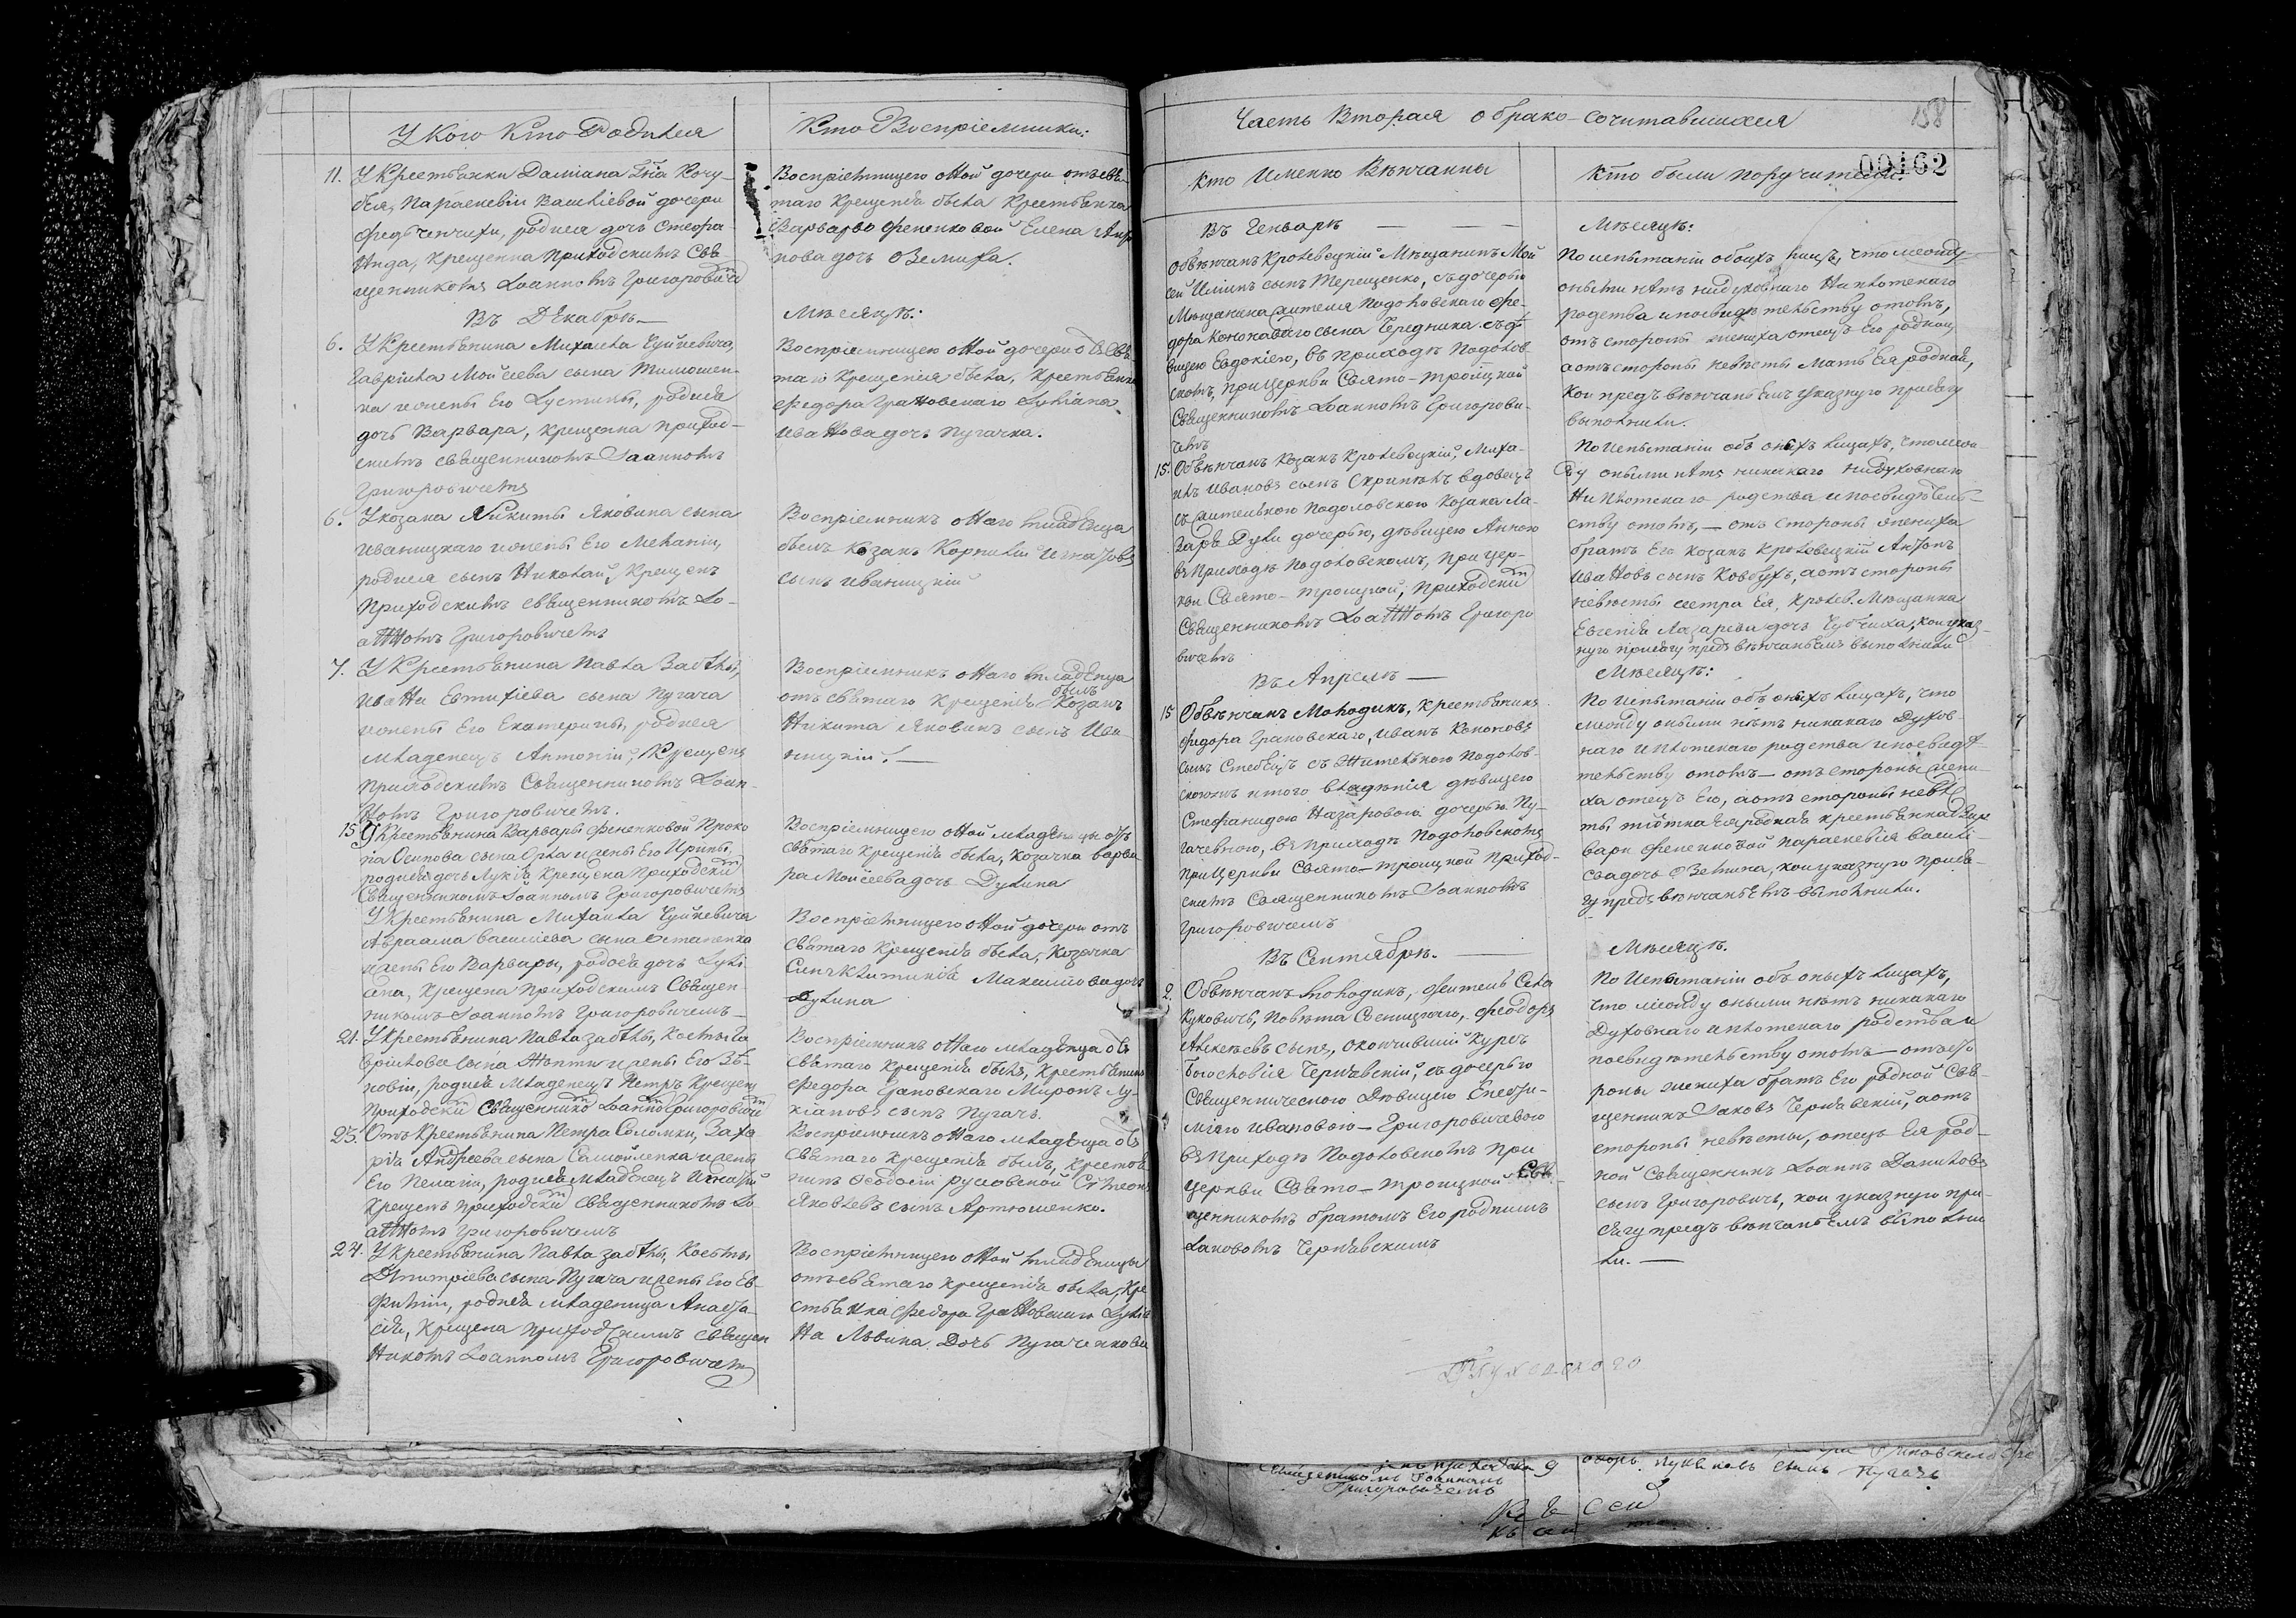 У Кого Кто Родился
Кто Воспріемники:
11. У Крестьянки Даміана Кочу-
бея, Параскевіи Василіевой дочери
родися дочь Стефа-
нида, Крещенна приходскимъ Свя-
щенникомъ Іоанномъ Григоровичемъ
Воспріемницею оной дочери отъ свя-
таго Крещенія была Крестьянка
Варвары Фененковой Елена
нова дочь
Въ Декабрѣ
Мѣсяцѣ:
6. У Крестьянина Михаила Цуйкевича,
Гавріила Мойсеева сына Тимошен-
ка и жены Его Іустины, родися
дочь Варвара, крещенна приход-
скимъ священникомъ Іоанномъ
Григоровичемъ
Воспріемницею оной дочери отъ Свя-
таго Крещенія была, Крестьянка
Федора Грановскаго Лукіана
Иванова дочь Пугачка.
6. У козака Никиты Яковина сына
Иваницкаго и жены Его Меланіи,
родися сынъ Николай, Крещенъ
Приходскимъ священникомъ Іо-
анномъ Григоровичемъ
Воспріемникъ онаго младенца
былъ Козакъ Корнилій Игнатовъ
сынъ Иваницкій
7. У Крестьянина Павла Забѣлы,
Ивана Евтихіева сына Пугача
жены Его Екатерины, родися
младенецъ Антоній, Крещенъ
приходскимъ Священникомъ Іоан-
номъ Григоровичемъ.
Воспріемникъ онаго младенца
отъ святаго Крещенія былъ Козакъ
Никита Яковинъ сынъ Ива-
ницкій. —
15. У Крестьянина Варвары Фененковой Проко
па Осипова сына Орла и жены Его Ирины,
родися дочь Лукія Крещена Приходскимъ
Священникомъ Іоанномъ Григоровичемъ
Воспріемницею оной младеницы отъ
святаго Крещенія была, Козачка Варва
ра Мойсеева дочь Дулина
У Крестьянина Михаила Цуйкевича
Авраама Василіева сына Остапенка
жены Его Варвары, родися дочь Лукі
ана, Крещена приходскимъ Священ-
никомъ Іоанномъ Григоровичемъ —
Воспріемницею оной дочери отъ
Святаго Крещенія была, Козачка
Синклитикія Максимова дочь
Дулина
21. У Крестьянина Павла Забѣлы, Косты Га
вріилова сына и жены Его Зѣ-
новіи, родися младенецъ Петръ Крещенъ
приходскій Священникъ Іоаннъ Григоровичъ
Воспріемникъ онаго младенца отъ
святаго Крещенія былъ, Крестьянинъ
Федора Грановскаго Миронъ Лу-
кіановъ сынъ Пугачъ.
23. Отъ Крестьянина Петра Соломки, Заха
рія Андреева сына Самойленка и жены
Его Пелагіи, родися младенецъ Игнатій
Крещенъ приходскимъ священникомъ Іо-
анномъ Григоровичемъ
Воспріемникъ онаго младенца отъ
святаго Крещенія былъ, Крестья
нинъ Особой русловской Симеонъ
Яковлевъ сынъ Артюшенко.
24. У Крестьянина Павла Забѣлы, Косты
Дмитріева сына Пугача и жены Его Ев-
фиміи, родися младеница Анаста-
сія, Крещена приходскимъ священ
никомъ Іоанномъ Григоровичемъ
Воспріемницею оной младеницы
отъ святаго крещенія была, Кре
стьянка Федора Грановскаго Лукія
на Львина Дочь Пугаченкова
Часть Вторая о брако-сочитавшихся
158
00162
Кто Именно Вѣнчанны
Кто были поручители.
Въ Генварѣ — — —
Мѣсяцѣ:
Обвѣнчанъ Кролевецкій Мѣщанинъ Мой
сей Ильинъ сынъ Терещенко, съ дочерью
Мѣщанина жителя Подоловскаго Фе-
дора Кононаваго сына Чередника съ дѣ
вицею Евдокіею, въ приходѣ Подолов-
скомъ, при церкви Свято-троицкой
Священникомъ Іоанномъ Григорови-
чемъ
По испытаніи обоихъ лицъ, что между
оными нѣтъ ни духовнаго ни плотскаго
родства и посвидѣтельству отомъ,
отъ стороны жениха отецъ Его родной
а отъ стороны невѣсты Мать Ея родная,
кои предъ вѣнчаніемъ указную присягу
выполнили.
15. Обвѣнчанъ Козакъ Кролевецкій, Миха-
илъ Ивановъ сынъ Скрипилъ вдовецъ
съ жителькою Подоловскою Козака Ла-
заря Дули дочерью, дѣвицею Анною
въ Приходѣ Подоловскомъ, при цер-
кви Свято-троицкой, Приходскимъ
Священникомъ Іоанномъ Григоро
вичемъ
По испытаніи объ оныхъ лицахъ, что меж
ду оными нѣтъ никакаго ни духовнаго
ни плотскаго родства и посвидѣтель-
ству отомъ, — отъ стороны жениха
братъ Его козакъ Кролевецкій Антонъ
Ивановъ сынъ Ковбухъ, а отъ стороны
невѣсты сестра Ея, Кролев. Мѣщанка
Евгенія Лазарева дочь Чубчиха, кои указ-
ную присягу предъ вѣнчаніемъ выполнили
Въ Апрелѣ —
Мѣсяцѣ:
15 Обвѣнчанъ Молодикъ, Крестьянинъ
Федора Грановскаго, Иванъ Кононовъ
сынъ Стебецъ съ жителькою Подолов-
скою и того владѣнія дѣвицею
Стефанидою Назаровою дочерью Пу-
гачевною, въ приходѣ Подоловскомъ
при Церкви Свято-троицкой Приход-
скимъ Священникомъ Іоанномъ
Григоровичемъ
По испытаніи объ оныхъ лицахъ, что
между оными нѣтъ никакаго Духов-
наго и плотскаго родства и посвидѣ-
тельству отомъ — отъ стороны жени-
ха отецъ Его, а отъ стороны невѣс
ты тіотка Ея родная крестьянка Вар
вары Фененковой Параскевія Васили-
ева дочь кои указную прися-
гу предъ вѣнчаніемъ выполнили.
Въ Сентябрѣ. —
Мѣсяцѣ.
2. Обвѣнчанъ Молодикъ, житель Села
Куковичъ, Повѣта Сосницкаго, Феодоръ
Алексѣевъ сынъ, окончившій Курсъ
Богословія Чернявскій, съ дочерью
Священническою Дѣвицею
Ивановою — Григоровичевою
въ Приходѣ Подоловскомъ при
Церкви Свято-троицкой Свя-
щенникомъ братомъ Его роднымъ
Іаковомъ Чернявскимъ
По испытаніи объ оныхъ лицахъ,
что между оными нѣтъ никакаго
Духовнаго и плотскаго родства и
посвидѣтельству отомъ — отъ сто
роны жениха братъ Его родной Свя-
щенникъ Іаковъ Чернявскій, а отъ
стороны невѣсты, отецъ Ея род-
ной Священникъ Іоаннъ Даниловъ
сынъ Григоровичъ, кои указную при-
сягу предъ вѣнчаніемъ выполни
ли. —
Священникомъ Іоанномъ
Григоровичемъ
сынъ Пугачъ